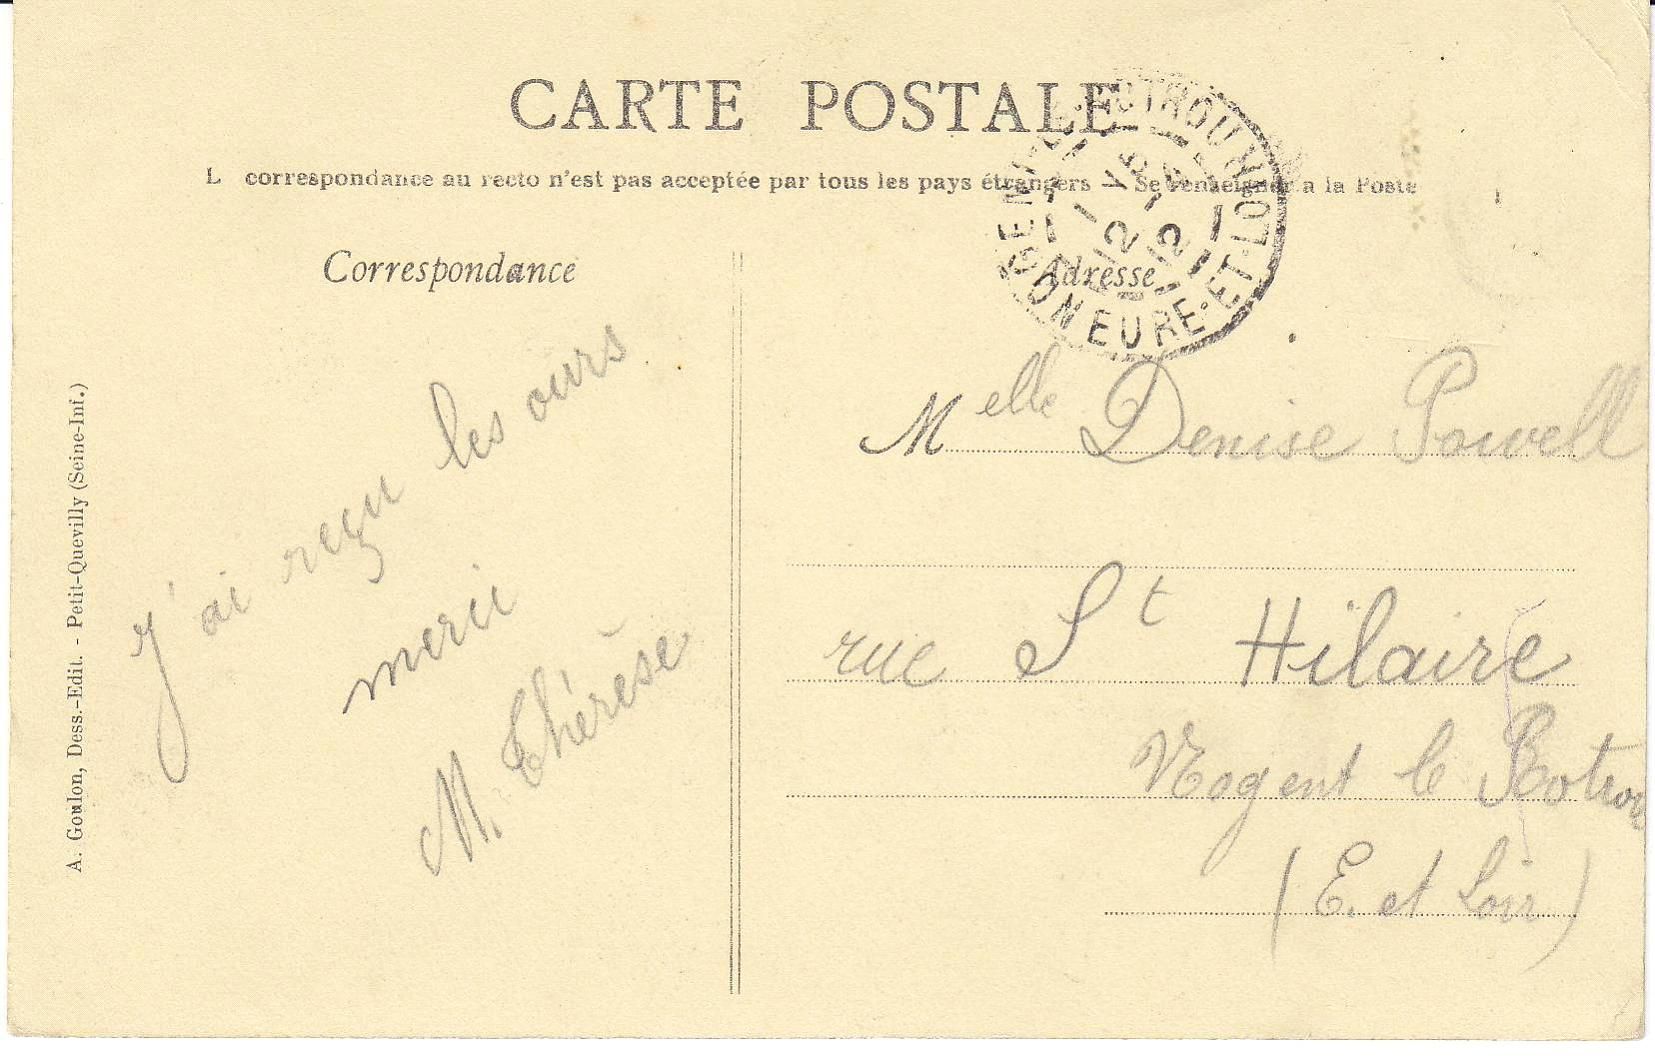 CARTE POSTALE
L correspondance au recto n'est pas acceptée par tous les pays étrangers — Se renseigner a la Poste
Correspondance
J'ai reçu les ours
merci
M. Thérèse
A. Goulon, Dess.-Edit. - Petit-Quevilly (Seine-Inf.)
EURE-ET-LOIR
12
12
Adresse
Melle Denise Powell
rue St Hilaire
Nogent le Rotrou
(E. et Loir)